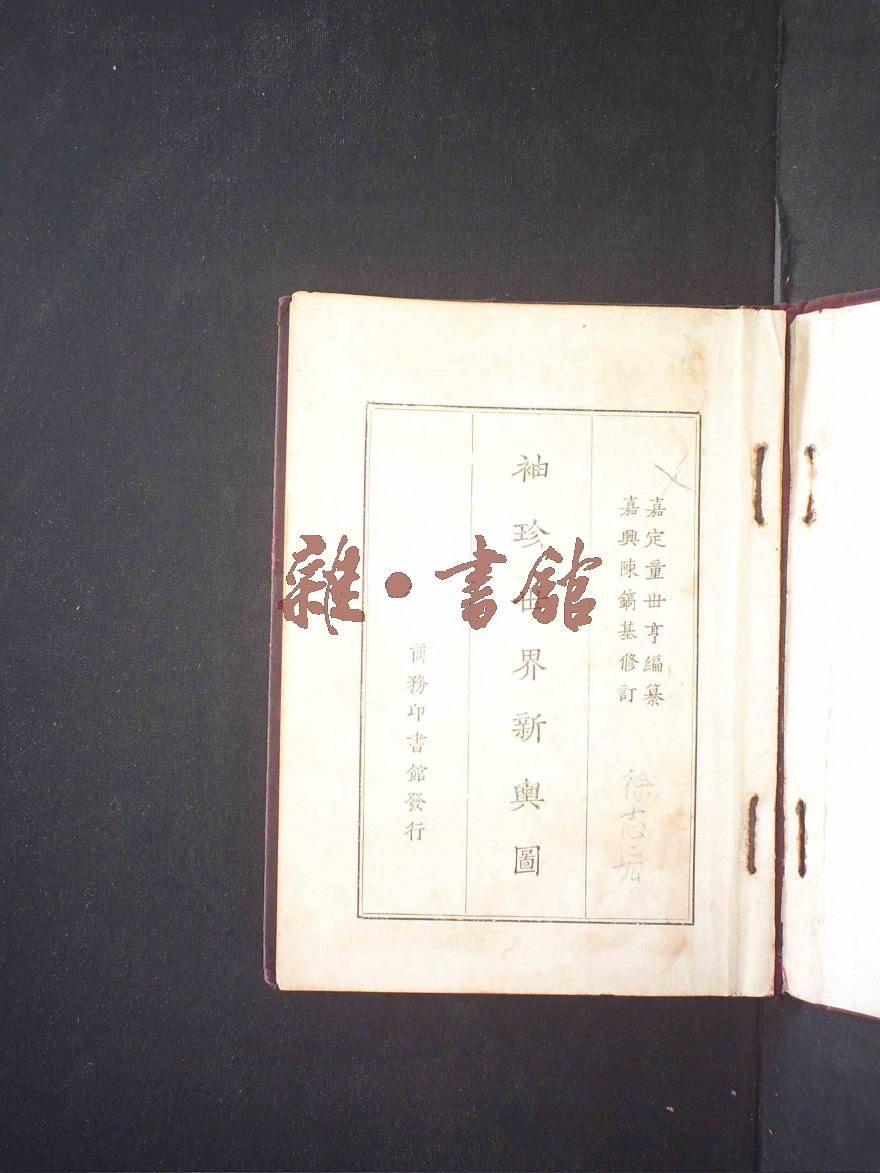 嘉定童世亨編纂
嘉興陳鎬基修訂
袖珍世界新輿圖
商務印書館發行
徐志宏
雜·書館